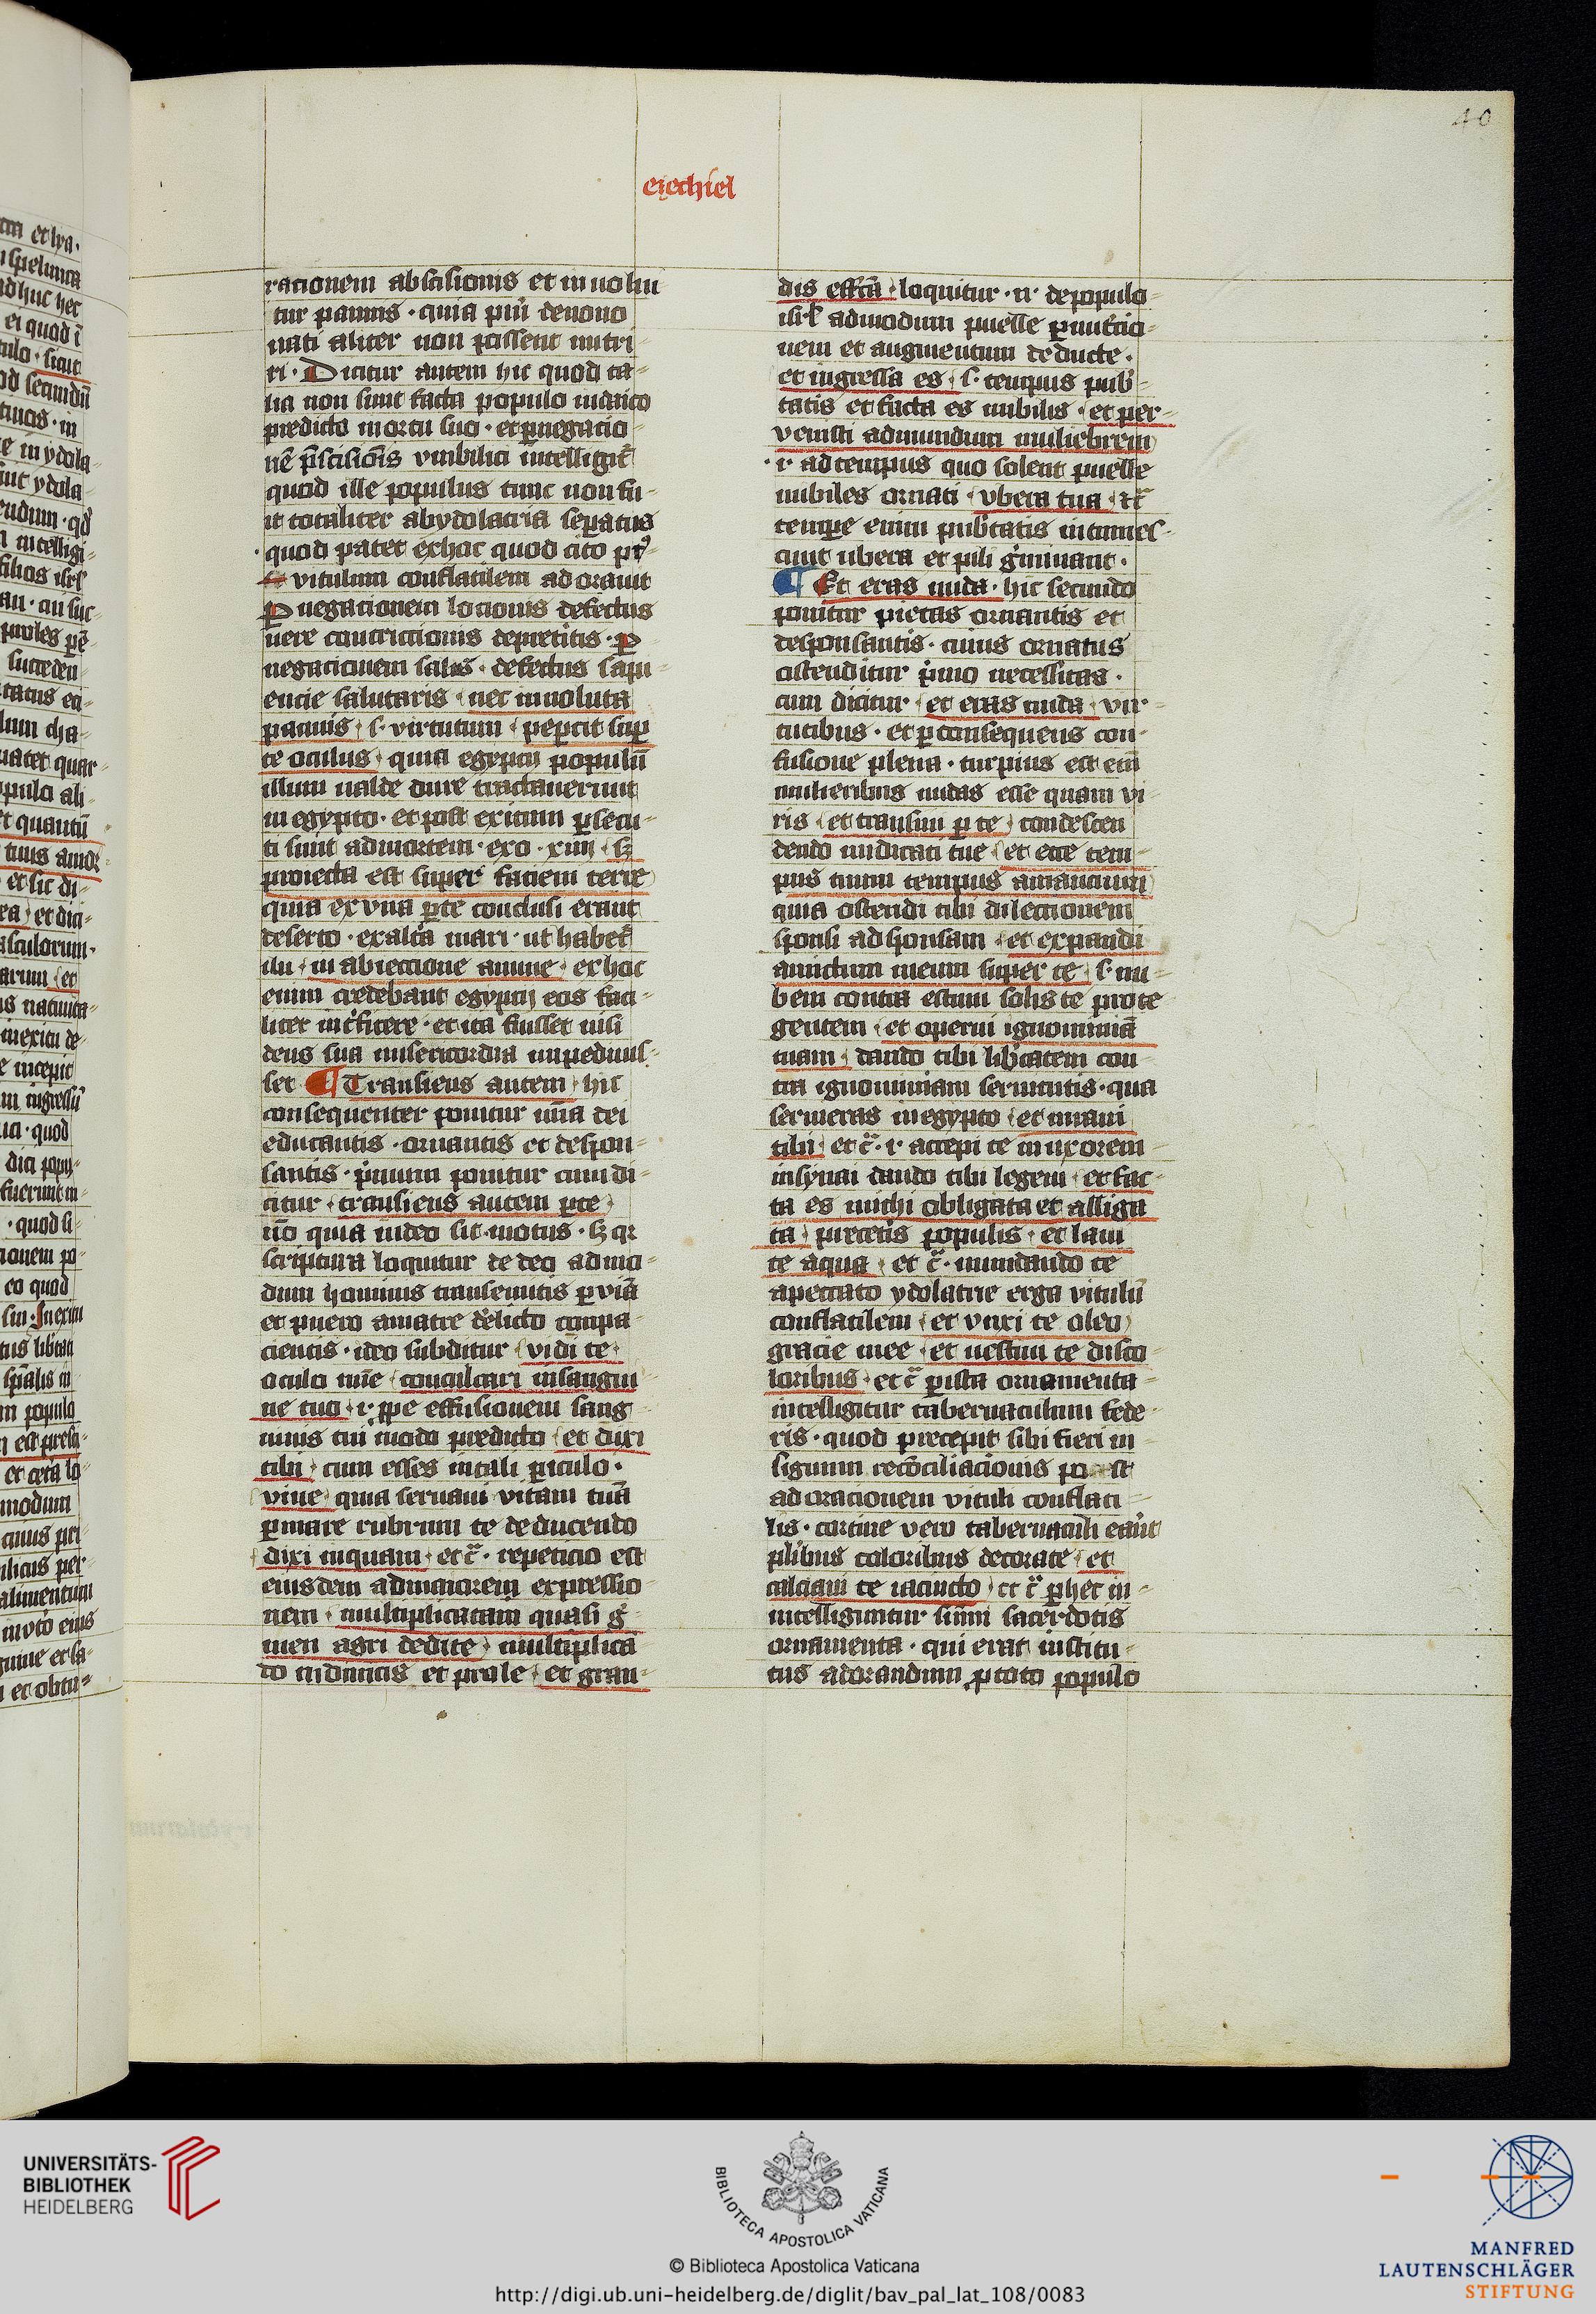 40
ezechiel
racionem abscisionis et inuoluu
tur pannis · quia pu̇i denouo
nati aliter non possent nutri-
ri · Dicitur autem hic quod ta-
lia non sunt facta populo iudaico
predicto in ortu suo · et ꝑ negacio-
nē p̄scisiōis vmbilici intelligit᷑
quod ille populus tunc non fu-
it totaliter ab ydolatria seꝑatus
quod patet ex hoc quod cito
vitulum conflatilem adorauit
ꝑ negacionem locionis defectus
vere contrictionis de peccatis · ꝑ
negacionem salis · defectus sapi-
encie salutaris · nec inuoluta
pannis · s· virtutum · peꝑcit suꝑ
te oculus · quia egypcij populū
illum ualde dure tractauerunt
in egypto · et post exitum ꝑsecu-
ti sunt ad mortem · exo · xiiij · sꝫ
proiecta est super faciem terre
quia ex vna ꝑte conclusi erant
deserto · ex alt̄a mari · ut habet᷑
ibi · in abieccione anime · ex hoc
enim credebant egypcij eos faci-
liter int̄ficere · et ita fuisset nisi
deus sua misericordia impediuis-
set ¶ Transiens autem · hic
consequenter ponitur mīa dei
educantis · ornantis et despon-
santis · p̍mum ponitur cum di-
citur · transiens autem ꝑ te ·
nō quia in deo sit motus · sꝫ qꝛ
scriptura loquitur de deo ad mo-
dum hominis transeuntis ꝑ viā
et puero a matre d̄elicto compa-
cientis · ideo subditur · vidi te ·
oculo mīe · conculcari in sangui
ne tuo · i· ꝓpe effusionem sang
uinis tui modo predicto · et dixi
tibi · cum esses in tali ꝑiculo ·
viue · quia seruaui vitam tuā
ꝑ mare rubrum te deducendo
dixi inquam · et c̄ · repeticio est
eiusdem ad maiorem expressio-
nem · multiplicatam quasi g̍-
men agri dedi te · multiplicā
do in diuiciis et prole · et gran-
dis effc̄ā · loquitur · n̍ · de populo
isr̄l ad modum puelle ꝑ nutͥcio-
nem et augmentum deducte ·
et ingressa es · s· tempus pub̍-
tatis et facta es nubilis · et per-
venisti ad mundum muliebrem
· i· ad tempus quo solent puelle
nubiles ornari · vbera tua · ⁊c̄
tempe enim pub̍tatis intumes-
cunt ubera et pili g̍minant ·
¶ Et eras nuda · hic secundo
ponitur pietas ornantis et
desponsantis · cuius ornatus
ostenditur p̍mo necessitas ·
cum dicitur · et eras nuda · vir-
tutibus · et ꝑ consequens con-
fusione plena · turpius est eni᷑
mulieribus nudas esse quam vi-
ris · et transiui ꝑ te · condescen
dendo mendicati tue · et ecce tem-
pus tuum tempus amancium
quia ostendi tibi dilectionem
sponsi ad sponsam · et expandi
amictum meum super te · s· nu-
bem contra estum solis te prote-
gentem · et operui ignominiā
tuam · dando tibi lib̍tatem con-
tra ignominiam seruitutis · qua
serueras in egypto · et iuraui
tibi · et c̄ · i· accepi te in uxorem
in synai dando tibi legem · et fac-
ta es michi obligata et alliga
ta · p̄ ceteris populis · et laui
te aqua · et c̄ · mundando te
a peccato ydolatrie erga vitulū
conflatilem · et vnxi te oleo
gracie mee · et uestiui te disco-
loribus · et c̄ ꝑ ista ornamenta-
intelligitur tabernaculum fede-
ris · quod precepit sibi fieri in
signum recōciliaciōnis post
adoracionem vituli conflati-
lis · cortine vero tabernaculi erāt
pl̍ibus coloribus decorate · et
calciaui te iacincto · et c̄ ꝑ hec in-
intelliguntur sūmi sacerdotis
ornamenta · qui erat institu-
tus ad orandum ꝓ toto populo
UNIVERSITÄTS-
BIBLIOTHEK
HEIDELBERG
BIBLIOTECA APOSTOLICA VATICANA
© Biblioteca Apostolica Vaticana
http://digi.ub.uni-heidelberg.de/diglit/bav_pal_lat_108/0083
MANFRED
LAUTENSCHLÄGER
STIFTUNG